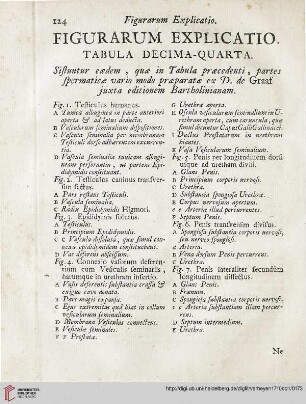 124 Figurarum Explicatio.
FIGURARUM EXPLICATIO.
TABULA DECIMA-QUARTA.
Sistuntur eædem, quæ in Tabula præcedenti, partes
spermaticæ vario modo præparatæ ex D. de Graaf
juxta editionem Bartholinianam.
Fig. 1. Testiculus humanus.
A Tunica albuginea ex parte anteriori
aperta & ad latus deducta.
B Vasculorum seminalium dispositiones.
C Vascula seminalia per membranam
Testiculi dorso adhærentem excurrentia.
D Vascula seminalia tunicam albugineam
perforantia, ut portem Epididymidis
constituant.
Fig. 2. Testiculus caninus transversim
sectus.
A Pars restans Testiculi.
B Vascula seminalia.
C Radix Epididymidis Higmori.
Fig. 3. Epididymis soluta.
A Testiculus.
B Principium Epididymidis.
C C Vascula dissoluta, quæ simul connexa
epididymidem constituebant.
D Vas deferens abscissum.
Fig. 4. Connexio vasorum deferentium
cum Vesiculis seminariis,
harumque in urethram insertio.
A Vasa deferentia substantia crassa &
exigua cavo donata.
B Pars magis expansa.
C Ejus extremitas quæ hiat in collum
vesicularum seminalium.
D Membrana Vesiculas connectens.
E Vesiculæ seminales.
F F Prostatæ.
G Urethra aperta.
H Ostiola vesicularum seminalium in Urethram
aperta, cum caruncula, quæ
simul dicuntur Caput Gallinaginis.
I Ductus Prostatarum in urethram
hiantes.
K Vasa Vesicularum seminalium.
Fig. 5. Penis per longitudinem dorsi
usque ad urethram divisus.
A Glans Penis.
B Principium corporis nervosi.
C Urethra.
D Substantia spongiosa Urethræ.
E Corpus nervosum apertum.
e e Arteriæ illud percurrentes.
F Septum Penis.
Fig. 6. Penis transversim divisus.
A Spongiosa substantia corporis nervosi,
seu nervei spongiosi.
c Arteria.
D Vena dorsum Penis percurrens.
E Urethra.
Fig. 7. Penis lateraliter secundum
longitudinem dissectus.
A Glans Penis.
B Frænum.
C Spongiosa substantia corporis nervosi.
c c Arteria eandem substantiam percurrens.
D Septum intermedium.
E Urethra.
Ne
http://digi.ub.uni-heidelberg.de/diglit/verheyen1710bd1/0173